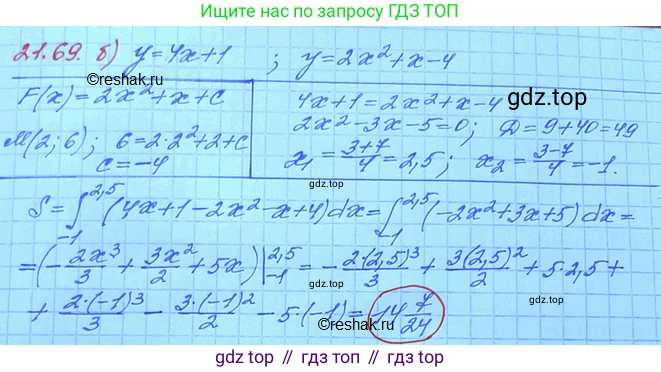 Ищите нас по запросу ГДЗ ТОП
21.69. б) y=4x+1 ; y=2x²+x-4
©reshak.ru
F(x)=2x²+x+C
M(2; 6); 6=2·2²+2+C
C=-4
4x+1=2x²+x-4
gdz.top
2x²-3x-5=0; D=9+40=49
x₁=(3+7)/4=2,5; x₂=(3-7)/4=-1.
gdz.top
S=∫₋₁^2,5 (4x+1-2x²-x+4)dx=∫₋₁^2,5 (-2x²+3x+5)dx=
=(-2x³/3+3x²/2+5x)|₋₁^2,5=-2·(2,5)³/3+3(2,5)²/2+5·2,5+
+2·(-1)³/3-3·(-1)²/2-5·(-1)=14 7/24
©reshak.ru
gdz top // гдз топ // gdz.top